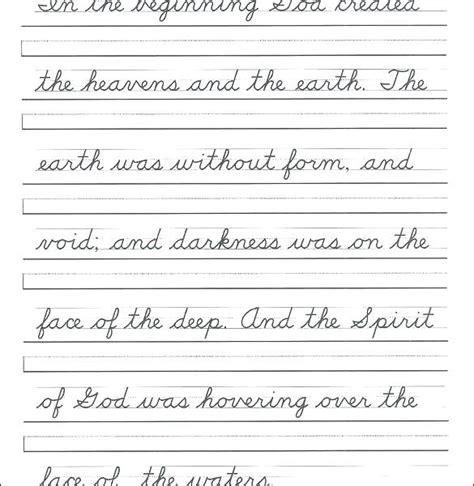 In the beginning God created
the heavens and the earth. The
earth was without form, and
void; and darkness was on the
face of the deep. And the Spirit
of God was hovering over the
face of the waters